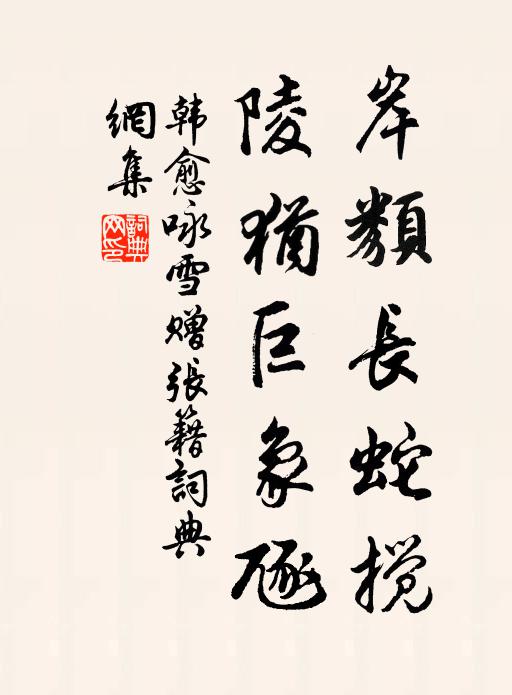 岸類長蛇搅
陵猶巨象豗
韩愈咏雪赠張籍詞典
網集
詞典
网印